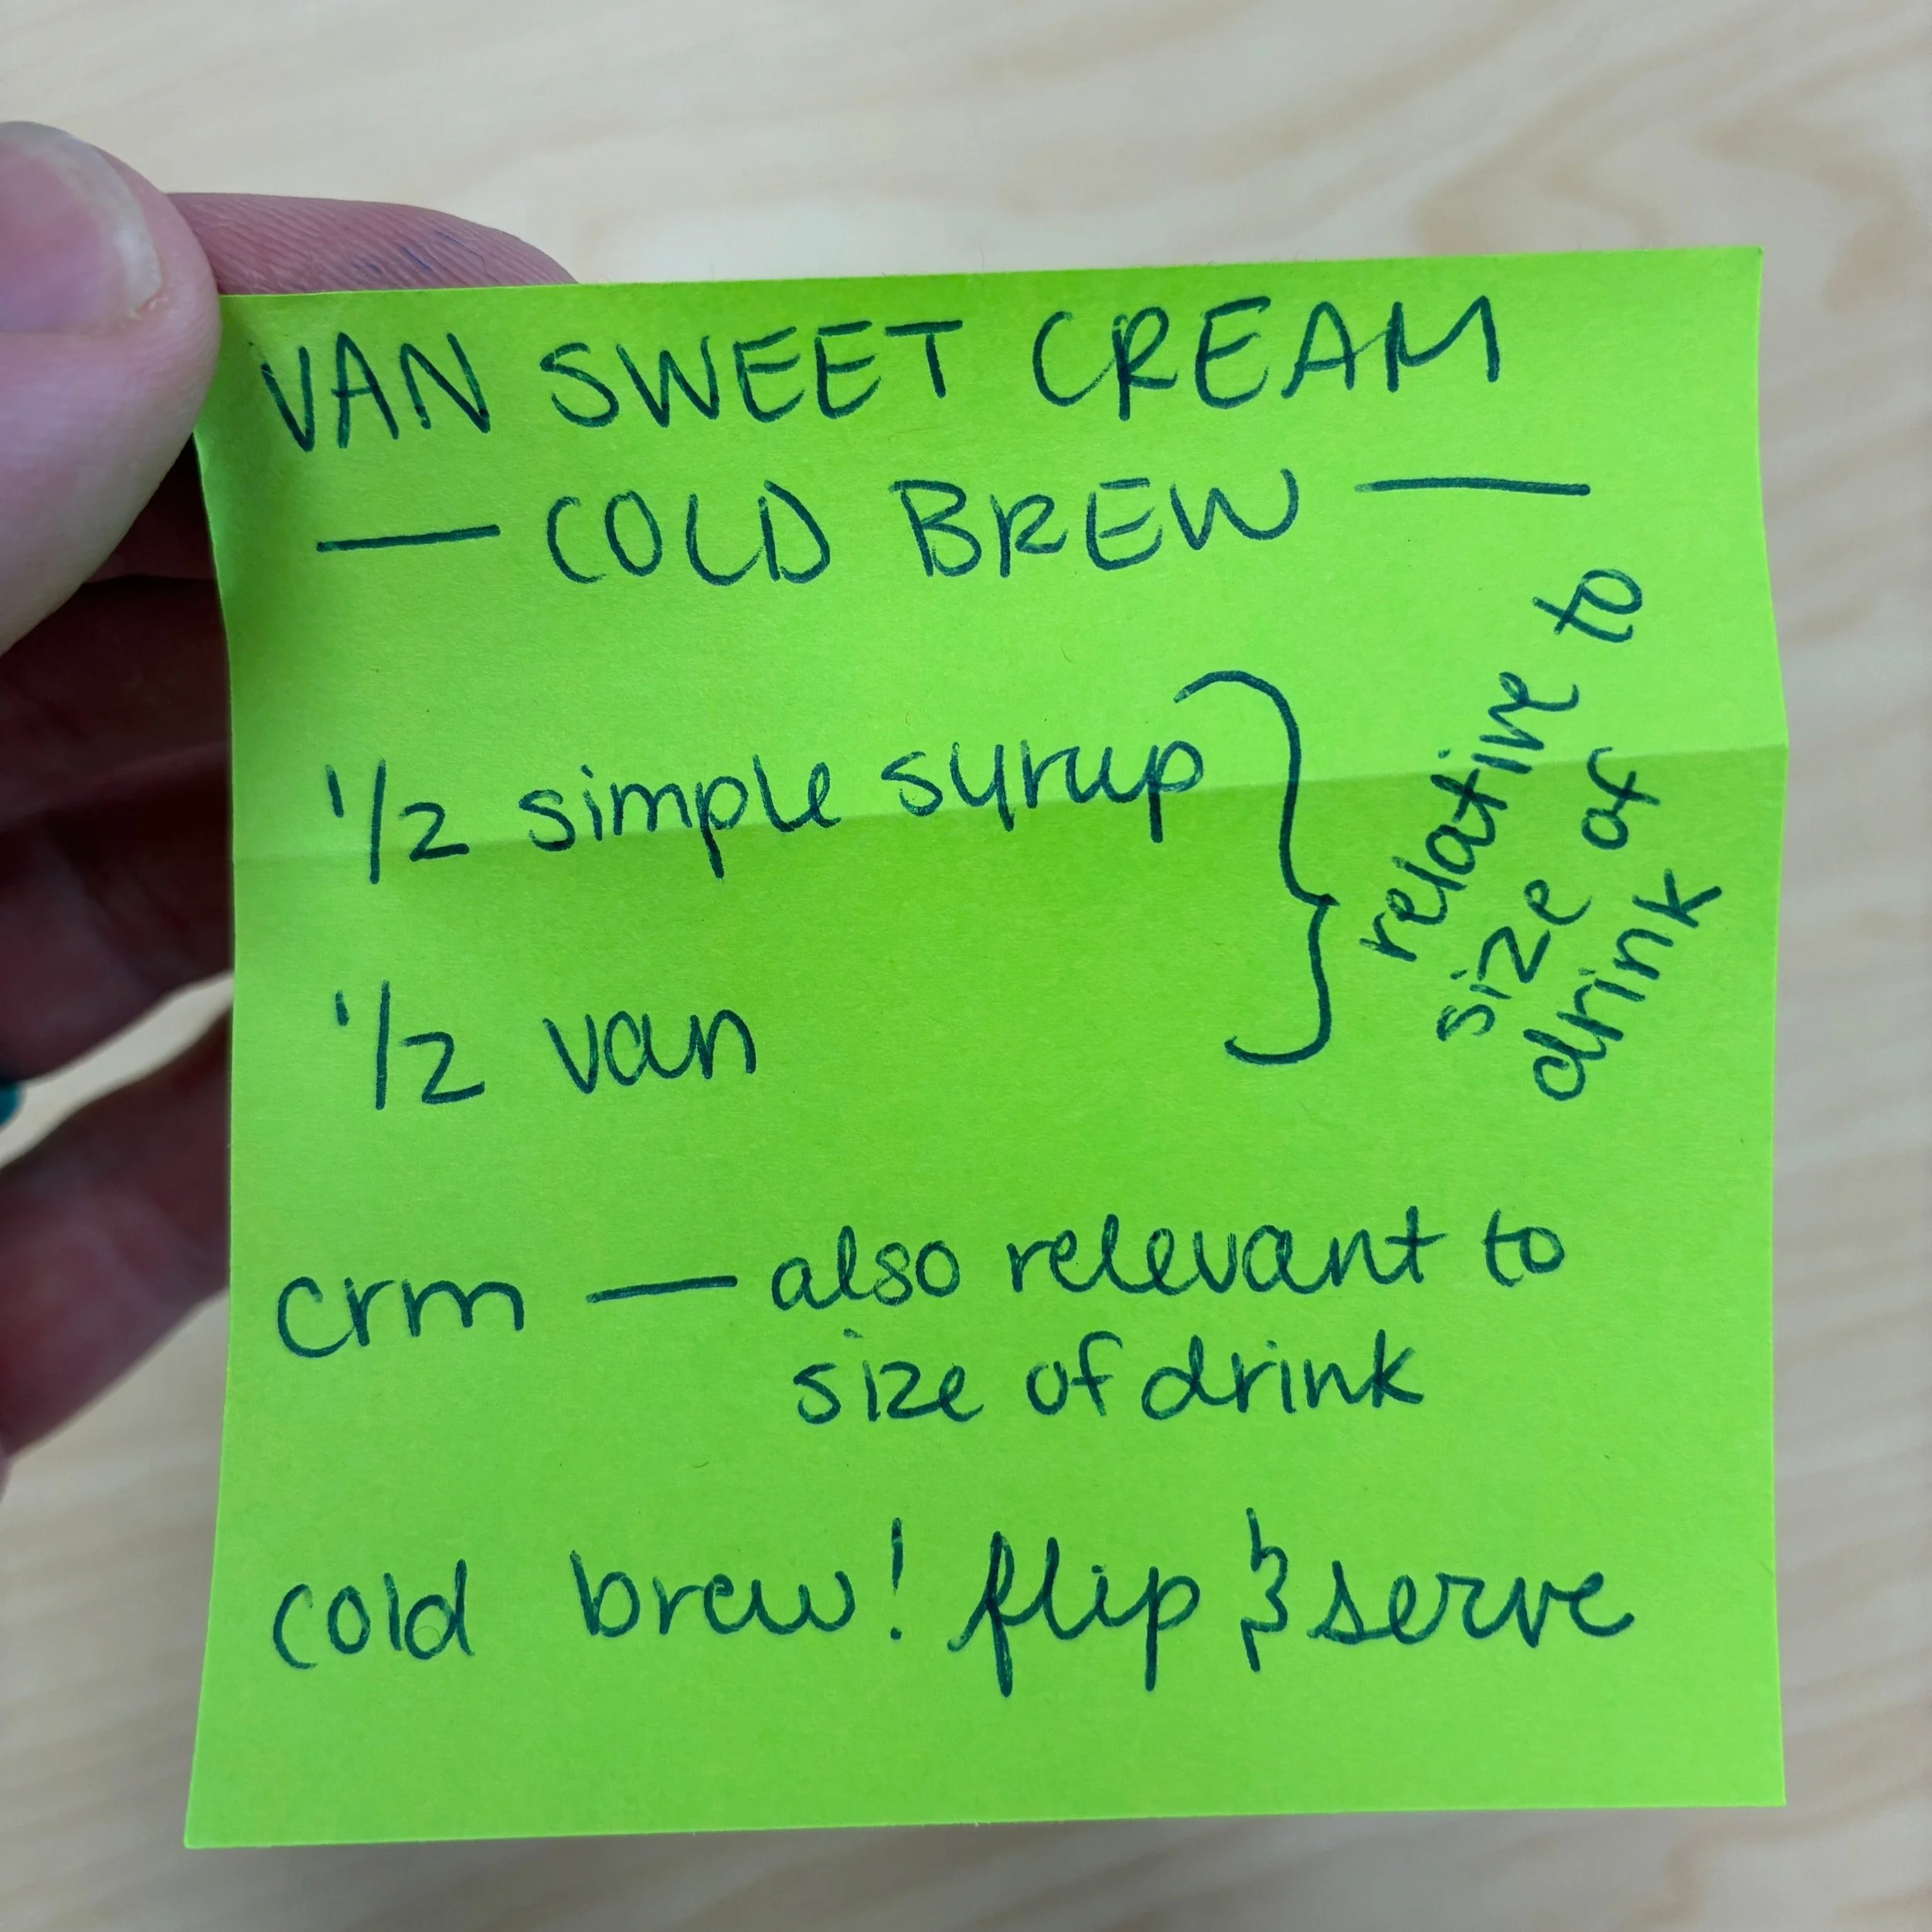 VAN SWEET CREAM
— COLD BREW —
1/2 simple syrup
1/2 van
relative to
size of
drink
crm — also relevant to
size of drink
cold brew! flip & serve